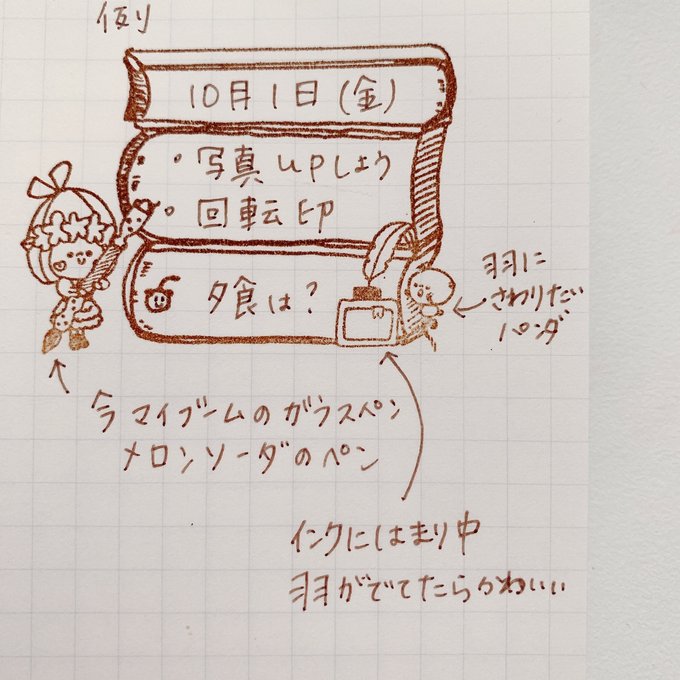 例
10月1日(金)
・写真upしよう
・回転印
夕食は?
羽に
さわりたい
パンダ
今マイブームのガラスペン
メロンソーダのペン
インクにはまり中
羽がでてたらかわいい